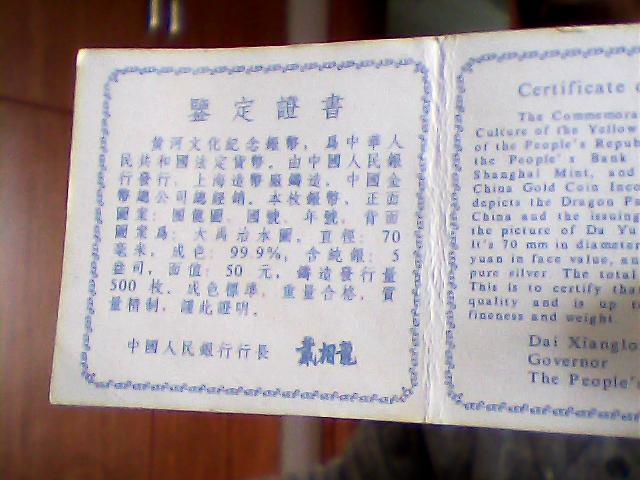 鑒定證書
黃河文化紀念銀幣，爲中華人
民共和國法定貨幣。由中國人民銀
行發行，上海造幣廠鑄造，中國金
幣總公司總經銷。本枚銀幣，正面
圖案：團龍圖、國號、年號，背面
圖案爲：大禹治水圖。直徑：70
毫米，成色：99.9%，含純銀：5
盎司，面值：50 元，鑄造發行量
500 枚。成色標準，重量合格，質
量精制，謹此證明。
中國人民銀行行長 戴相龍
Certificate
The Commemora
Culture of the Yellow
of the People's Repub
the People's Bank
Shanghai Mint, and
China Gold Coin Inc
depicts the Dragon Pa
China and the issuing
the picture of Da Yu
It's 70 mm in diameter
yuan in face value, an
pure silver. The total
This is to certify tha
quality and is up t
fineness and weight.
Dai Xianglo
Governor
The People'